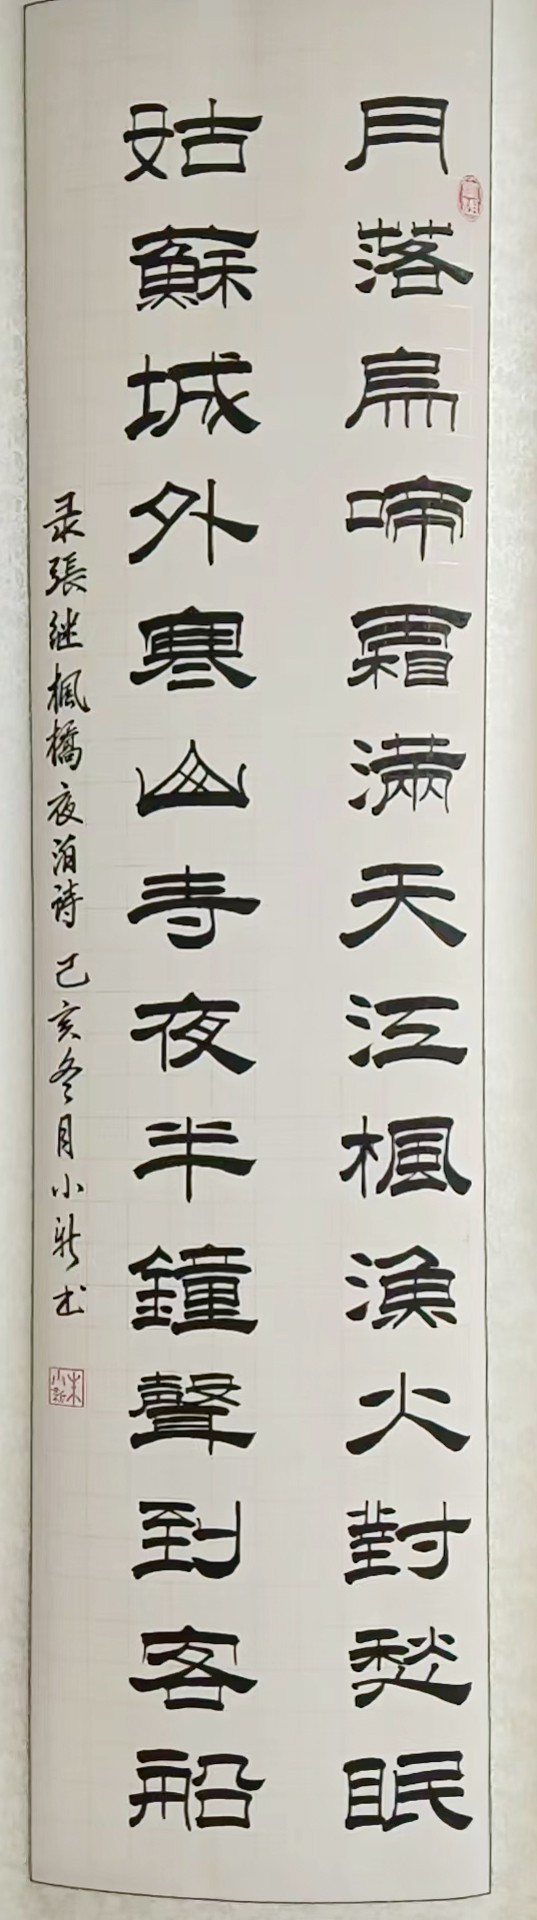 月落烏啼霜滿天江楓漁火對愁眠
姑蘇城外寒山寺夜半鐘聲到客船
录張继楓橋夜泊诗 己亥冬月小新书
朱小新